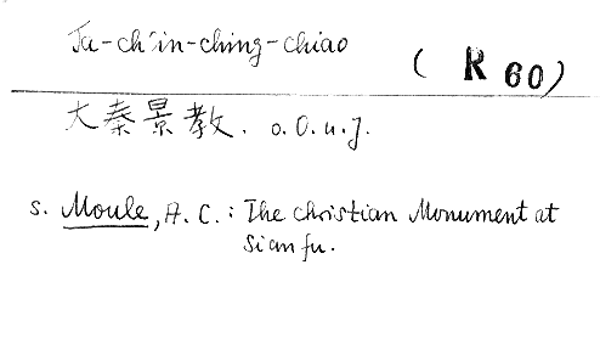 Ta-ch'in-ching-chiao
(R 60)
大秦景教. o.O.u.J.
s. Moule, A. C.: The christian Monument at
Sianfu.